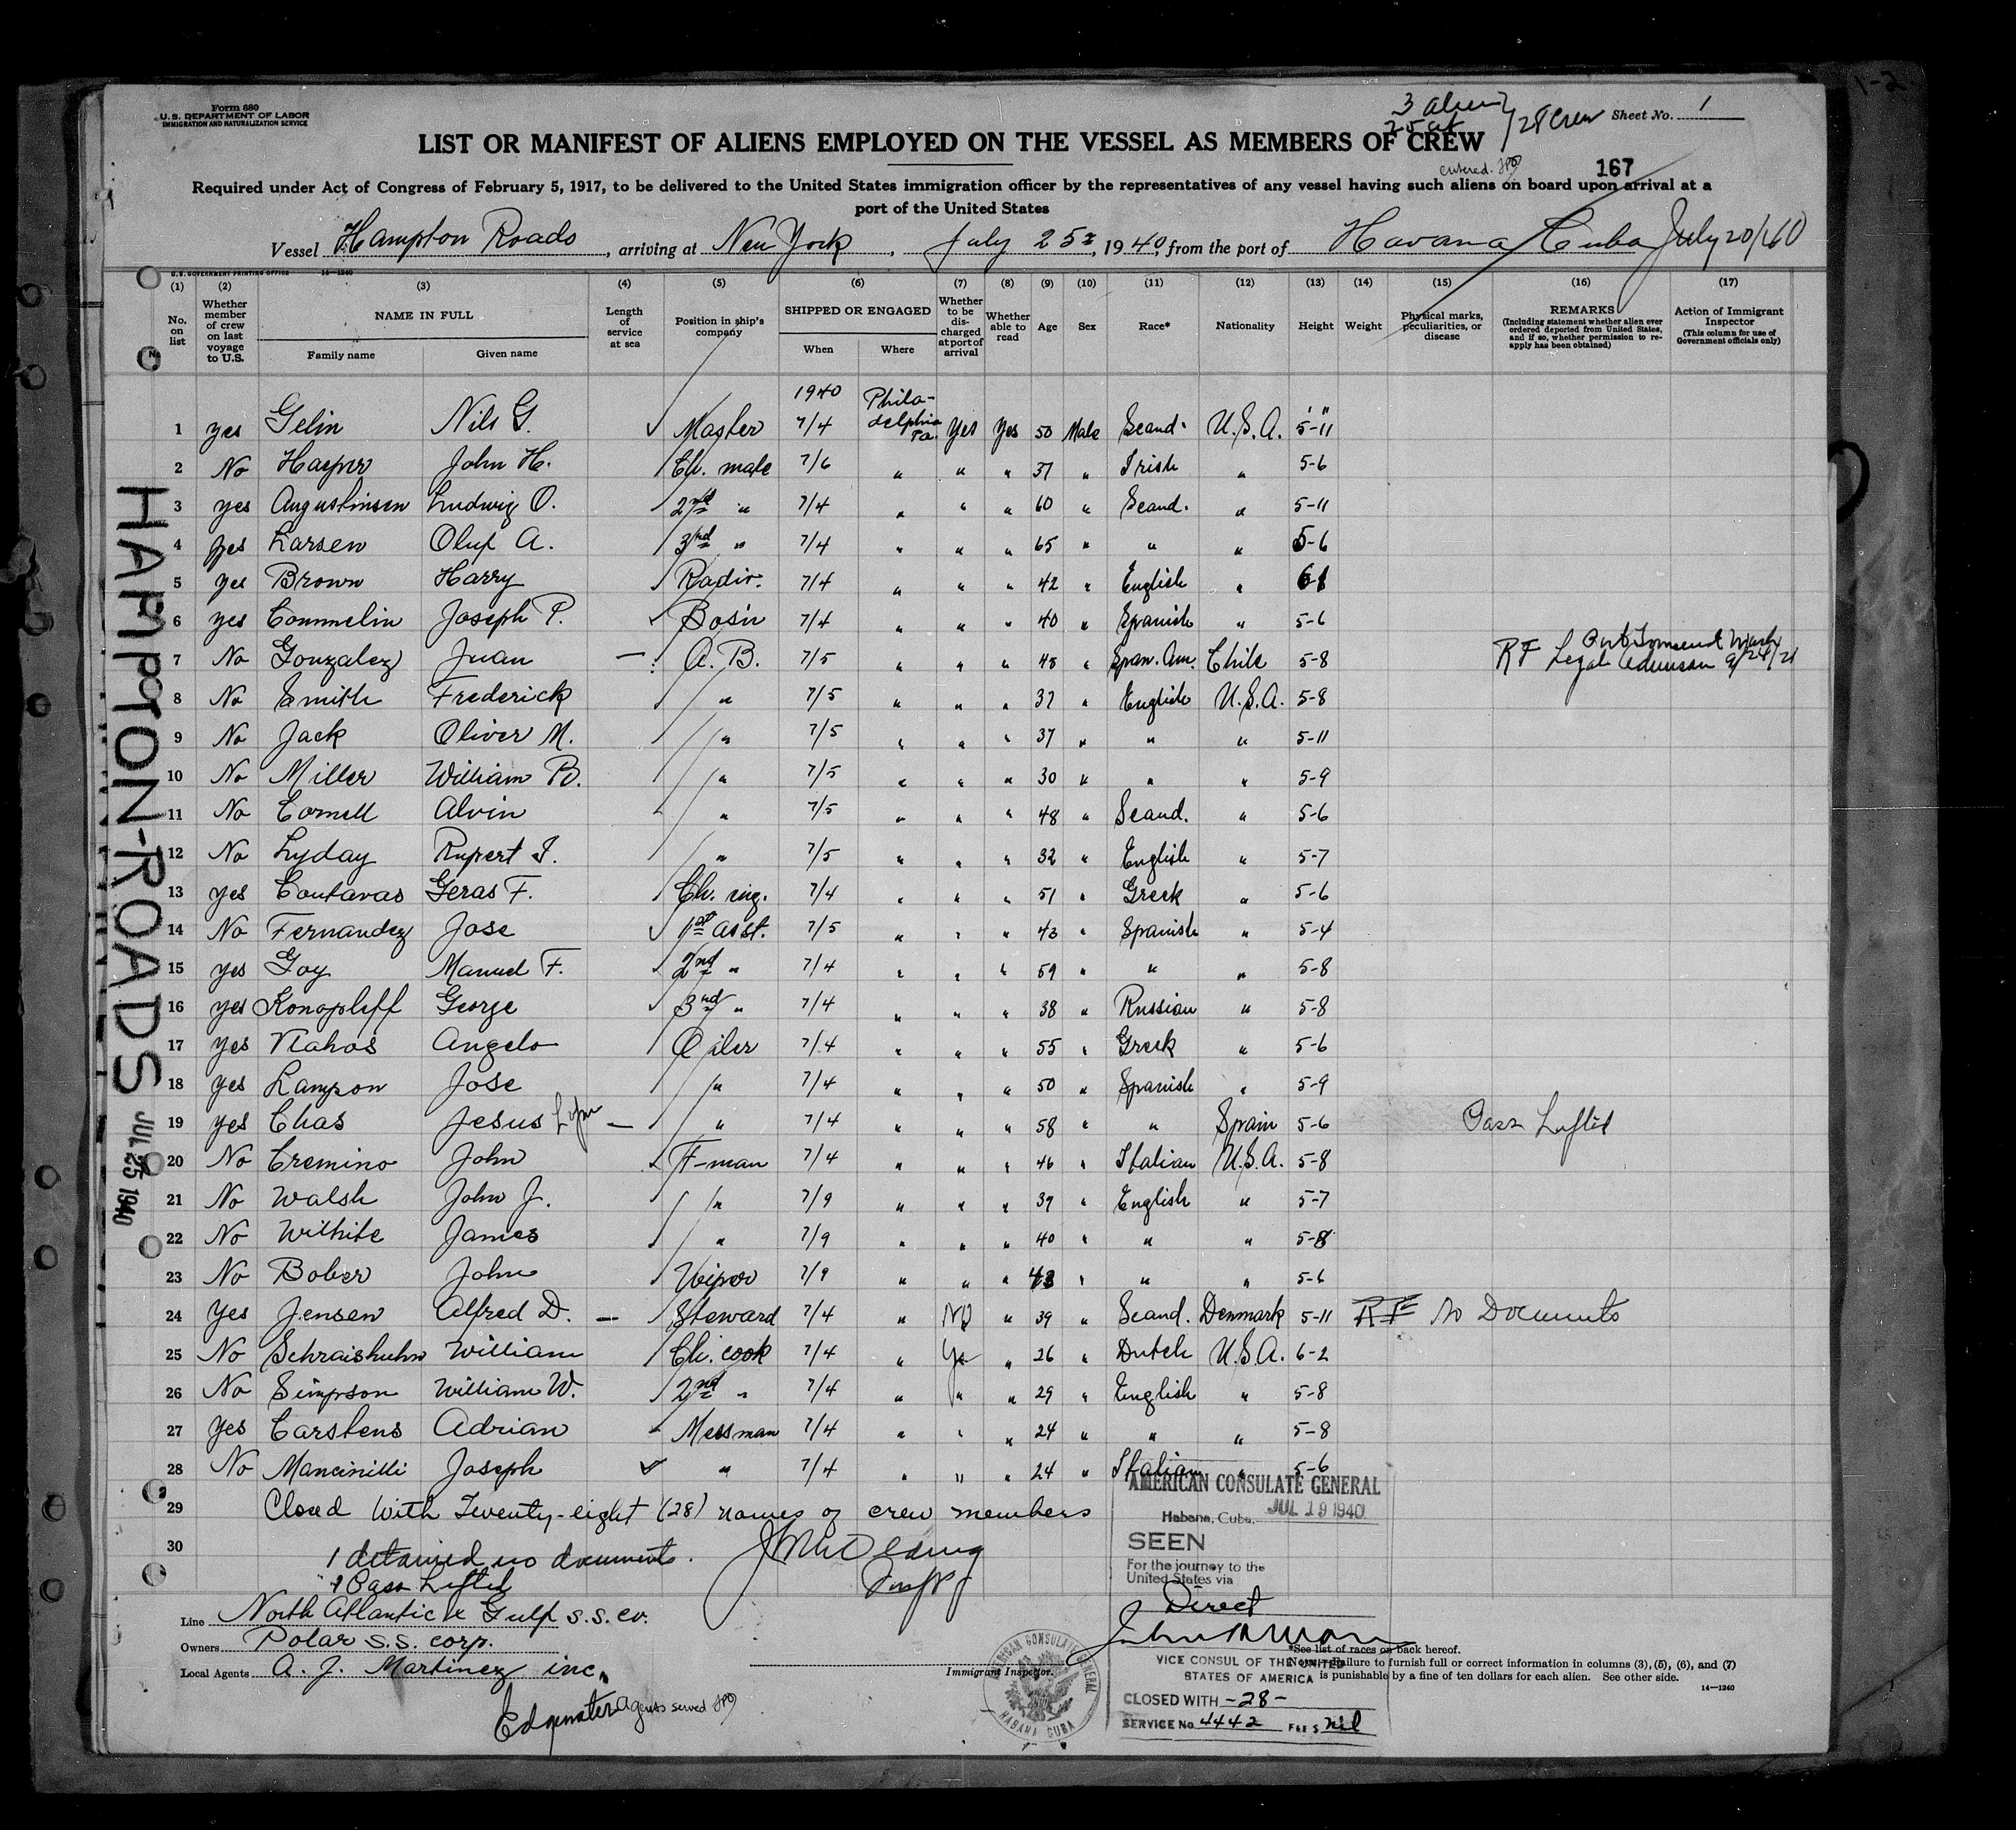 1-2
Form 680
U.S. DEPARTMENT OF LABOR
IMMIGRATION AND NATURALIZATION SERVICE
3 alien
25 cit
28 crew Sheet No. 1
LIST OR MANIFEST OF ALIENS EMPLOYED ON THE VESSEL AS MEMBERS OF CREW
entered.
167
Required under Act of Congress of February 5, 1917, to be delivered to the United States immigration officer by the representatives of any vessel having such aliens on board upon arrival at a
port of the United States
Vessel Hampton Roads, arriving at New York, July 25, 1940, from the port of Havana Cuba July 20/40
U.S. GOVERNMENT PRINTING OFFICE 14-1240
(1) (2) (3) (4) (5) (6) (7) (8) (9) (10) (11) (12) (13) (14) (15) (16) (17)
No. on list
Whether member of crew on last voyage to U.S.
NAME IN FULL
Family name Given name
Length of service at sea
Position in ship's company
SHIPPED OR ENGAGED
When Where
Whether to be discharged at port of arrival
Whether able to read
Age
Sex
Race*
Nationality
Height
Weight
Physical marks, peculiarities, or disease
REMARKS
(Including statement whether alien ever ordered deported from United States, and if so, whether permission to reapply has been obtained)
Action of Immigrant Inspector
(This column for use of Government officials only)
1940
1 yes Gelin Nils G. Master 7/4 Philadelphia Pa. Yes Yes 50 Male Scand. U.S.A. 5-11
2 No Harper John H. Ch. mate 7/6 " " " 37 " Irish " 5-6
3 yes Augustinsen Ludwig O. 2nd " 7/4 " " " 60 " Scand. " 5-11
4 yes Larsen Oluf A. 3rd " 7/4 " " " 65 " " " 5-6
5 yes Brown Harry Radio. 7/4 " " " 42 " English "
6 yes Coummelin Joseph P. Bos'n 7/4 " " " 40 " Spanish " 5-6
7 No Gonzalez Juan — A.B. 7/5 " " " 48 " Span. Am. Chile 5-8 RF Port Townsend Wash Legal admission 9/24/21
8 No Smith Frederick " 7/5 " " " 37 " English U.S.A. 5-8
9 No Jack Oliver M. " 7/5 " " " 37 " " " 5-11
10 No Miller William B. " 7/5 " " " 30 " " " 5-9
11 No Cornell Alvin " 7/5 " " " 48 " Scand. " 5-6
12 No Lyday Rupert I. " 7/5 " " " 32 " English " 5-7
13 yes Coutavas Geras F. Ch. eng. 7/4 " " " 51 " Greek " 5-6
14 No Fernandez Jose 1st asst. 7/5 " " " 43 " Spanish " 5-4
15 yes Goy Manuel F. 2nd " 7/4 " " " 59 " " " 5-8
16 yes Konopleff George 3rd " 7/4 " " " 38 " Russian " 5-8
17 yes Vlahos Angelo Oiler 7/4 " " " 55 " Greek " 5-6
18 yes Lampon Jose " 7/4 " " " 50 " Spanish " 5-9
19 yes Chas Jesus — " 7/4 " " " 58 " " Spain 5-6 Pass Lifted
20 No Cremino John F-man 7/4 " " " 46 " Italian U.S.A. 5-8
21 No Walsh John J. " 7/9 " " " 39 " English " 5-7
22 No Wilhite James " 7/9 " " " 40 " " " 5-8
23 No Bober John Wiper 7/9 " " " 43 " " " 5-6
24 Yes Jensen Alfred D. — Steward 7/4 " No " 39 " Scand. Denmark 5-11 RF No Documents
25 No Schraishuhn William Ch. cook 7/4 " Yes " 26 " Dutch U.S.A. 6-2
26 No Simpson William W. 2nd " 7/4 " " " 29 " English " 5-8
27 yes Carstens Adrian Messman 7/4 " " " 24 " " " 5-8
28 No Mancinilli Joseph " 7/4 " " " 24 " Italian " 5-6
29 Closed with Twenty-eight (28) names of crew members
30
1 detained no documents.
1 Pass Lifted
Line North Atlantic & Gulf S.S. Co.
Owners Polar S.S. Corp.
Local Agents A. J. Martinez inc.
Edgewater Agents served
Immigrant Inspector.
AMERICAN CONSULATE GENERAL
Habana, Cuba. JUL 19 1940
SEEN
For the journey to the
United States via
Direct
VICE CONSUL OF THE UNITED
STATES OF AMERICA
CLOSED WITH -28-
SERVICE No. 4442 FEE $ nil
*See list of races on back hereof.
NOTE.—Failure to furnish full or correct information in columns (3), (5), (6), and (7)
is punishable by a fine of ten dollars for each alien. See other side.
14—1240
AMERICAN CONSULATE GENERAL
HABANA CUBA
HAMPTON-ROADS
JUL 25 1940